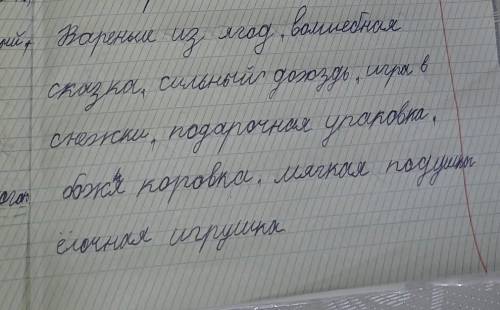 Вареные из ягод, волшебная
сказка, сильный дождь, игра в
снежки, подарочная упаковка,
божья коровка, мягкая подушка
ёлочная игрушка